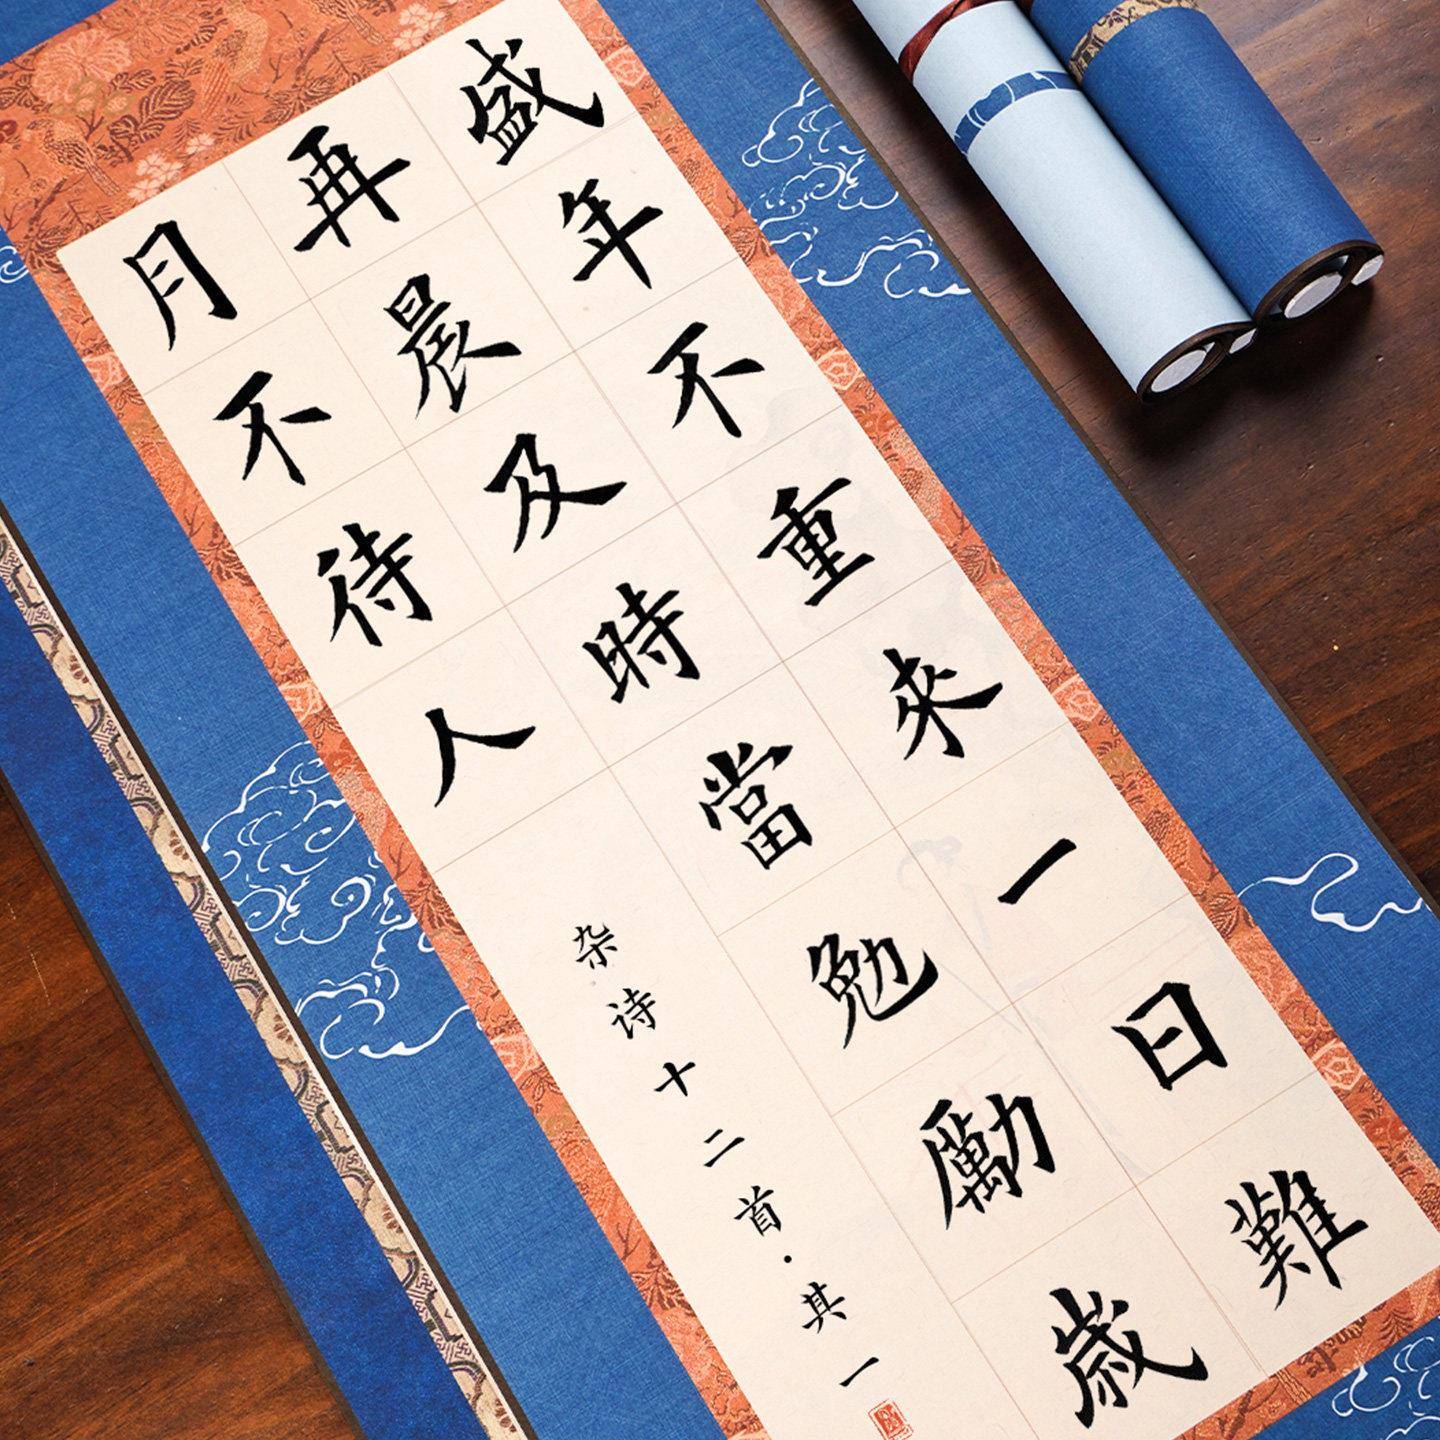 盛年不重來一日難
再晨及時當勉勵歲
月不待人
杂诗十二首·其一